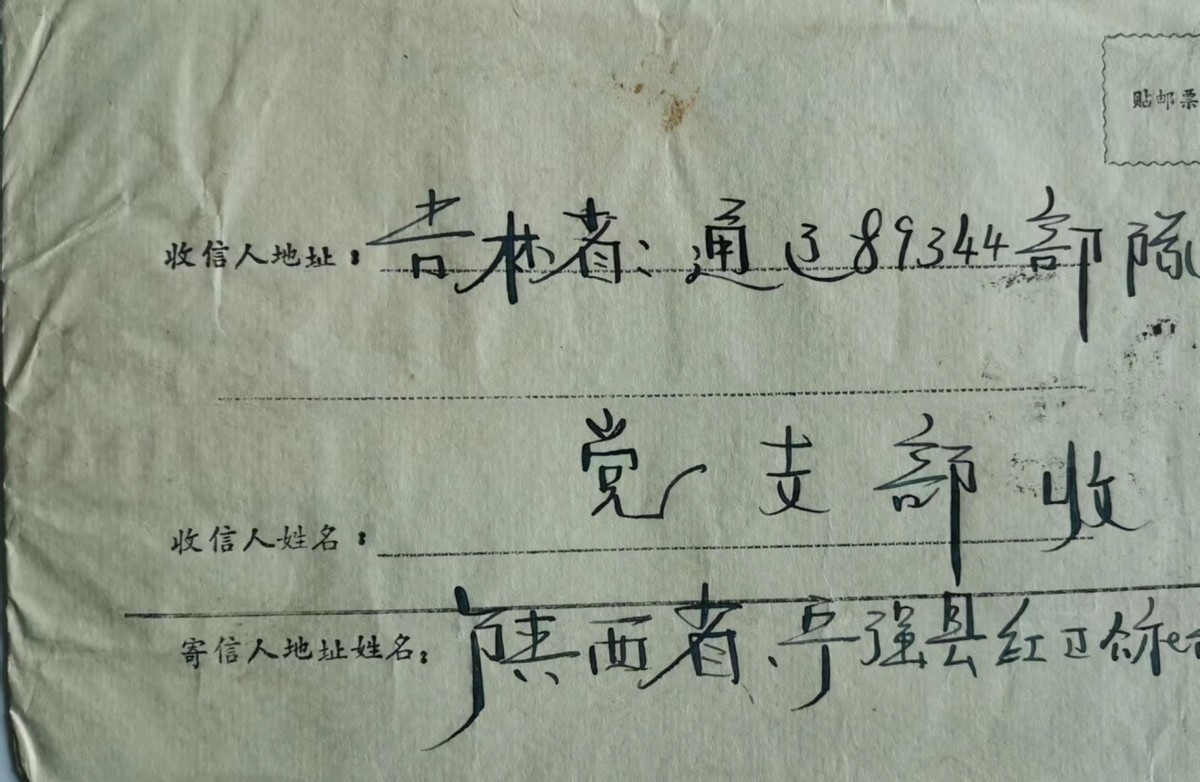 贴邮票
收信人地址：吉林省：通辽89344部队
党支部收
收信人姓名：
寄信人地址姓名：陕西省、宁强县红卫